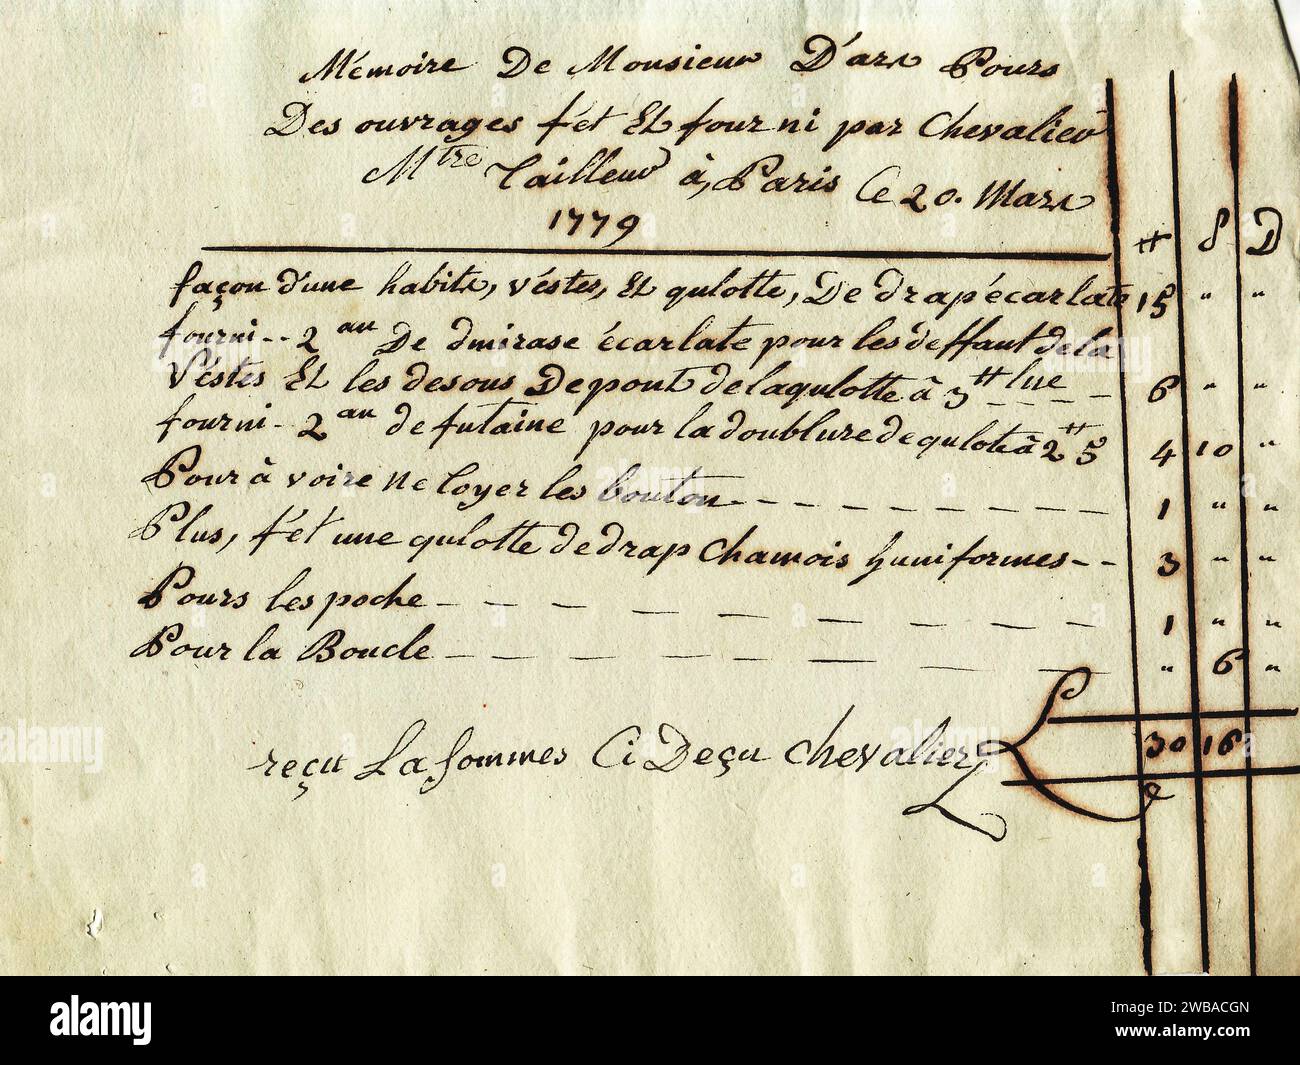 Mémoire De Monsieur D'arx Pours
Des ouvrages fét Et fourni par Chevalier
Mtre Tailleur à, Paris Ce 20. Marx
1779
# S D
façon d'une habite, véstes, Et qulotte, De drap écarlate 15 " "
fourni -- 2 au De dmirase écarlate pour les deffant de la
Véstes Et les desous De pont de la qulotte à 3# lue 6 " "
fourni - 2 au de futaine pour la doublure de qulote à 2# 5 4 10 "
Pour à voire netoyer les bouton 1 " "
Plus, fét une qulotte de drap Chamois huniformes -- 3 " "
Pours les poche 1 " "
Pour la Boucle " 6 "
30 16
reçu La sommes Ci Deçu Chevalier
alamy
Image ID: 2WBACGN
www.alamy.com